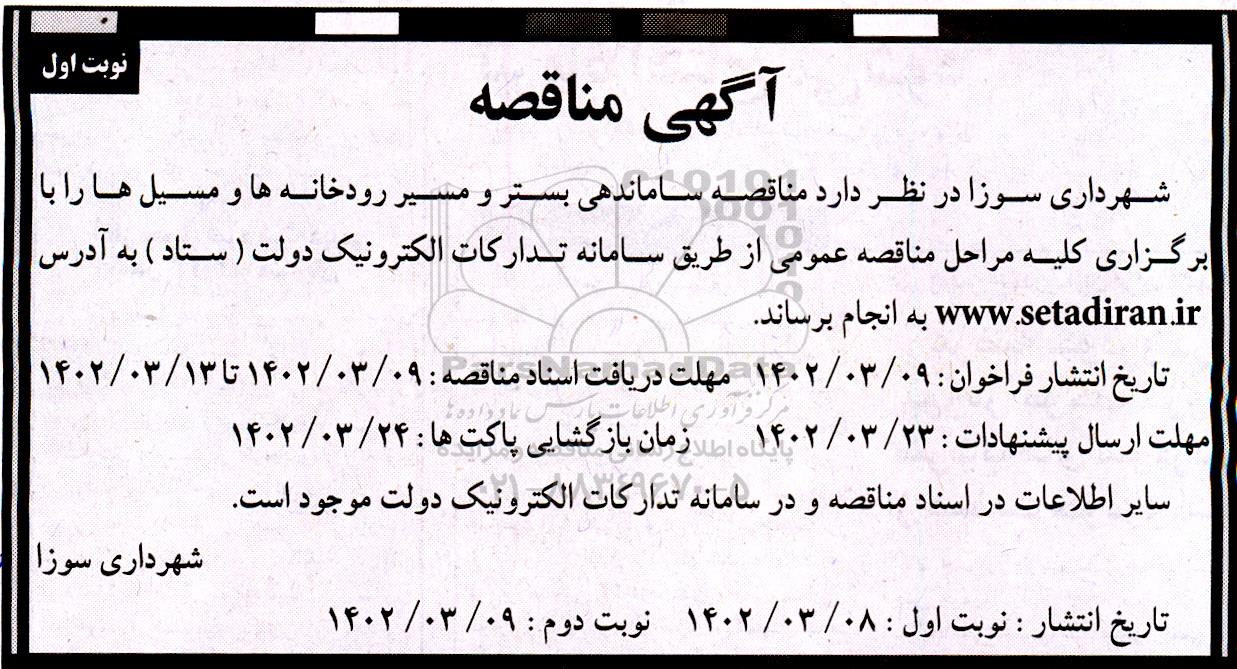 نوبت اول
آگهی مناقصه
شهرداری سوزا در نظر دارد مناقصه ساماندهی بستر و مسیر رودخانه ها و مسیل ها را با
برگزاری کلیه مراحل مناقصه عمومی از طریق سامانه تدارکات الکترونیک دولت ( ستاد ) به آدرس
www.setadiran.ir به انجام برساند.
تاریخ انتشار فراخوان : ۱۴۰۲/۰۳/۰۹ مهلت دریافت اسناد مناقصه : ۱۴۰۲/۰۳/۰۹ تا ۱۴۰۲/۰۳/۱۳
مهلت ارسال پیشنهادات : ۱۴۰۲/۰۳/۲۳ زمان بازگشایی پاکت ها : ۱۴۰۲/۰۳/۲۴
سایر اطلاعات در اسناد مناقصه و در سامانه تدارکات الکترونیک دولت موجود است.
شهرداری سوزا
تاریخ انتشار : نوبت اول : ۱۴۰۲/۰۳/۰۸ نوبت دوم : ۱۴۰۲/۰۳/۰۹
ParsNamadData
مرکز فرآوری اطلاعات پارس نماد داده ها
پایگاه اطلاع رسانی مناقصه و مزایده
۰۲۱-۸۸۳۴۹۶۷۰-۵